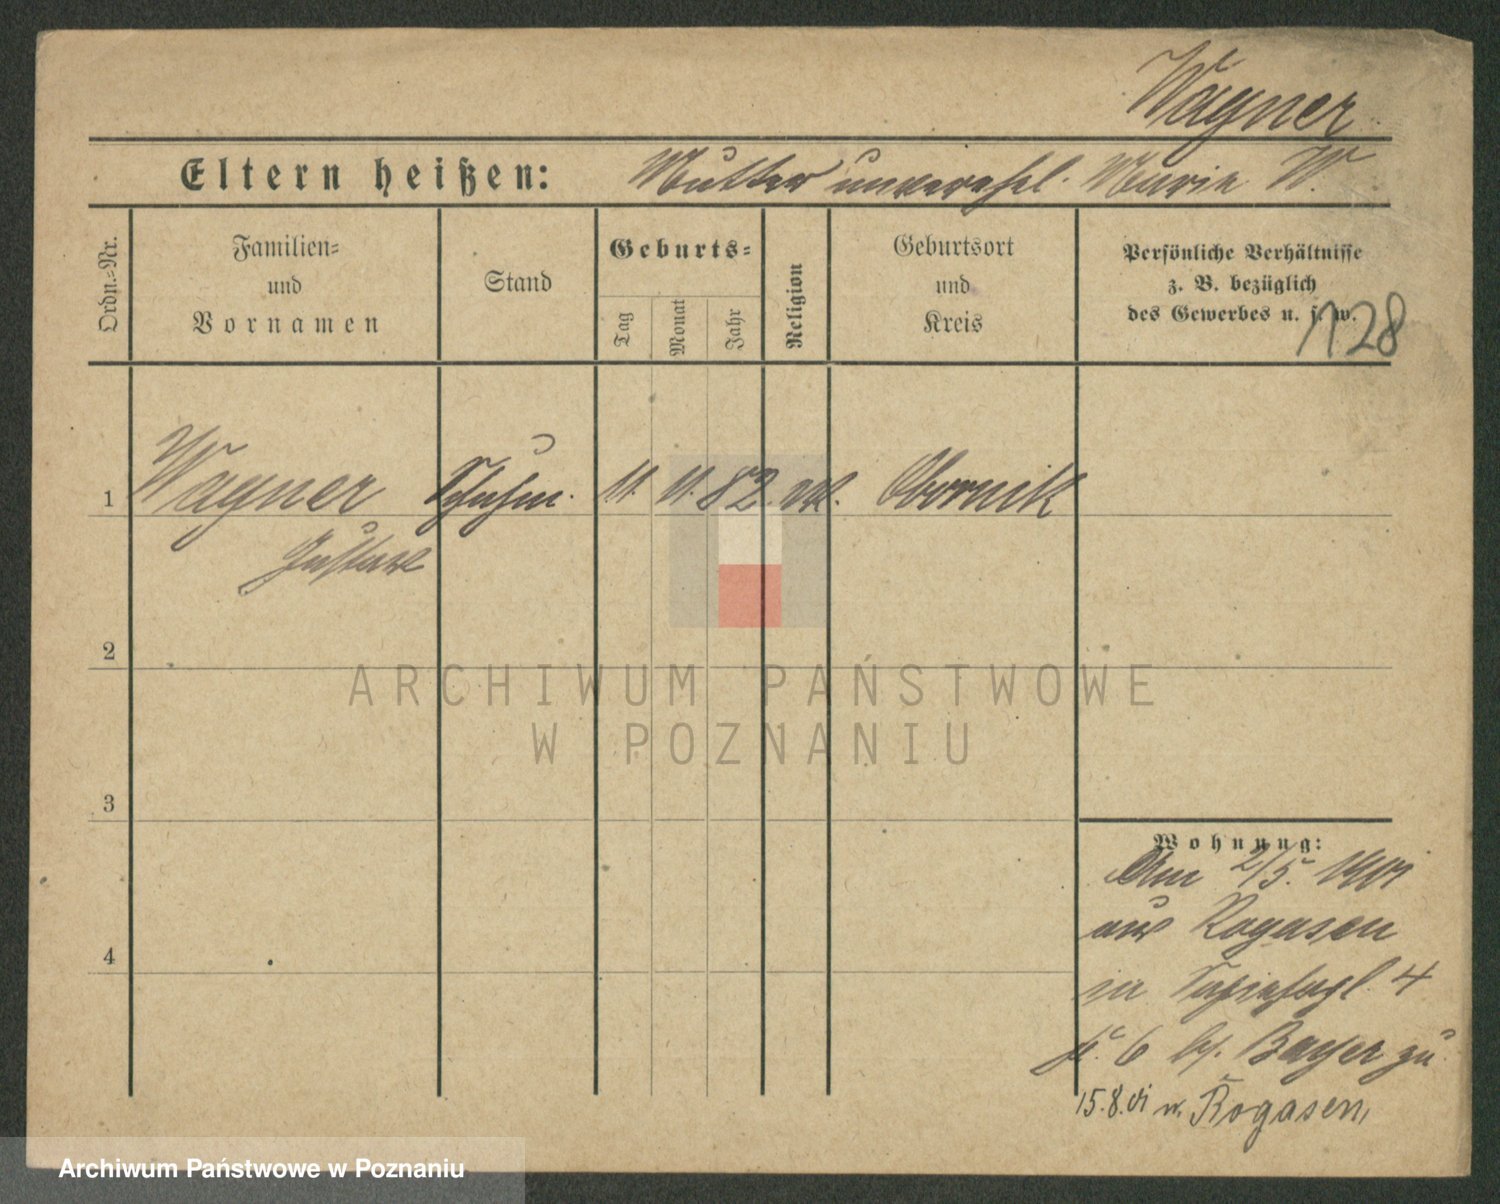 Wagner
Eltern heißen: Mutter unverehel. Marie W.
Ordn.-Nr.
Familien-
und
Vornamen
Stand
Geburts-
Tag
Monat
Jahr
Religion
Geburtsort
und
Kreis
Persönliche Verhältnisse
z. B. bezüglich
des Gewerbes u. s. w.
128
1 Wagner Schuhm. 11. 11. 82. Obornik
Gustav
2
3
4
Wohnung:
Am 2/5. 1901
aus Rogasen
in 4
6 b/. Bayer zu
15.8.01 n. Rogasen,
ARCHIWUM PAŃSTWOWE
W POZNANIU
Archiwum Państwowe w Poznaniu